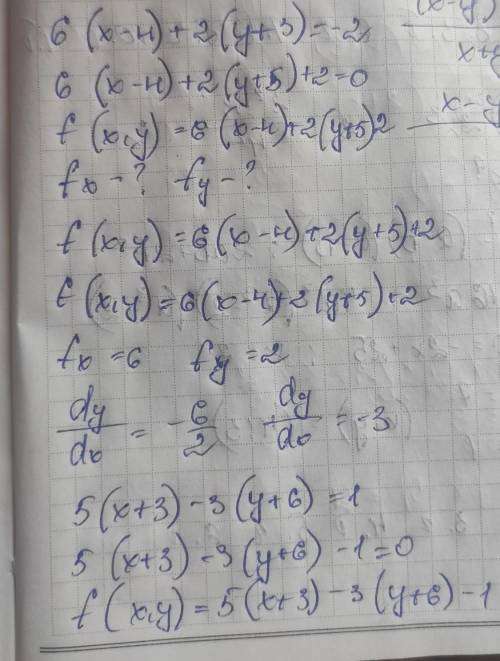 6 (x-4)+2(y+3)=-2
(x-y)
x+y
6 (x-4)+2(y+5)+2=0
x-y
f (x,y) =6 (x-4)+2(y+5)2
fx - ? fy - ?
f (x,y) =6(x-4)+2(y+5)+2
f (x,y)=6(x-4)+2(y+5)+2
fx =6 fy =2
dy/dx = -6/2 dy/dx = -3
5(x+3)-3(y+6)=1
5 (x+3)-3(y+6)-1=0
f (x,y) =5(x+3)-3(y+6)-1